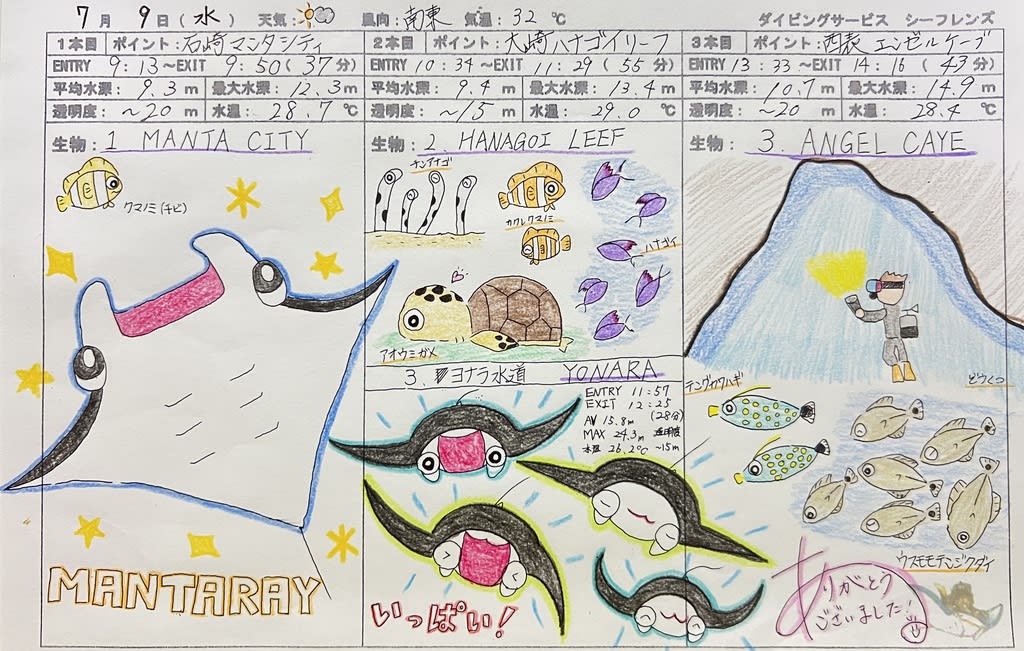 7月 9日(水) 天気: 風向:南東 気温:32℃ ダイビングサービス シーフレンズ
1本目 ポイント:石崎マンタシティ
ENTRY 9:13~EXIT 9:50(37分)
平均水深: 9.3m 最大水深: 12.3m
透明度: ~20m 水温: 28.7℃
生物: 1 MANTA CITY
クマノミ(チビ)
MANTARAY
2本目 ポイント:大崎ハナゴイリーフ
ENTRY 10:34~EXIT 11:29(55分)
平均水深: 9.4m 最大水深: 13.4m
透明度: ~15m 水温: 29.0℃
生物: 2. HANAGOI LEEF
チンアナゴ
カクレクマノミ
ハナゴイ
アオウミガメ
3. ヨナラ水道 YONARA
ENTRY 11:57
EXIT 12:25
(28分)
AV 15.8m
MAX 24.3m 透明度
水温 26.2℃ ~15m
いっぱい!
3本目 ポイント:西表 エンゼルケーブ
ENTRY 13:33~EXIT 14:16(43分)
平均水深: 10.7m 最大水深: 14.9m
透明度: ~20m 水温: 28.4℃
生物: 3. ANGEL CAYE
どうくつ
テングカワハギ
ウスモモテンジクダイ
ありがとう
ございました!